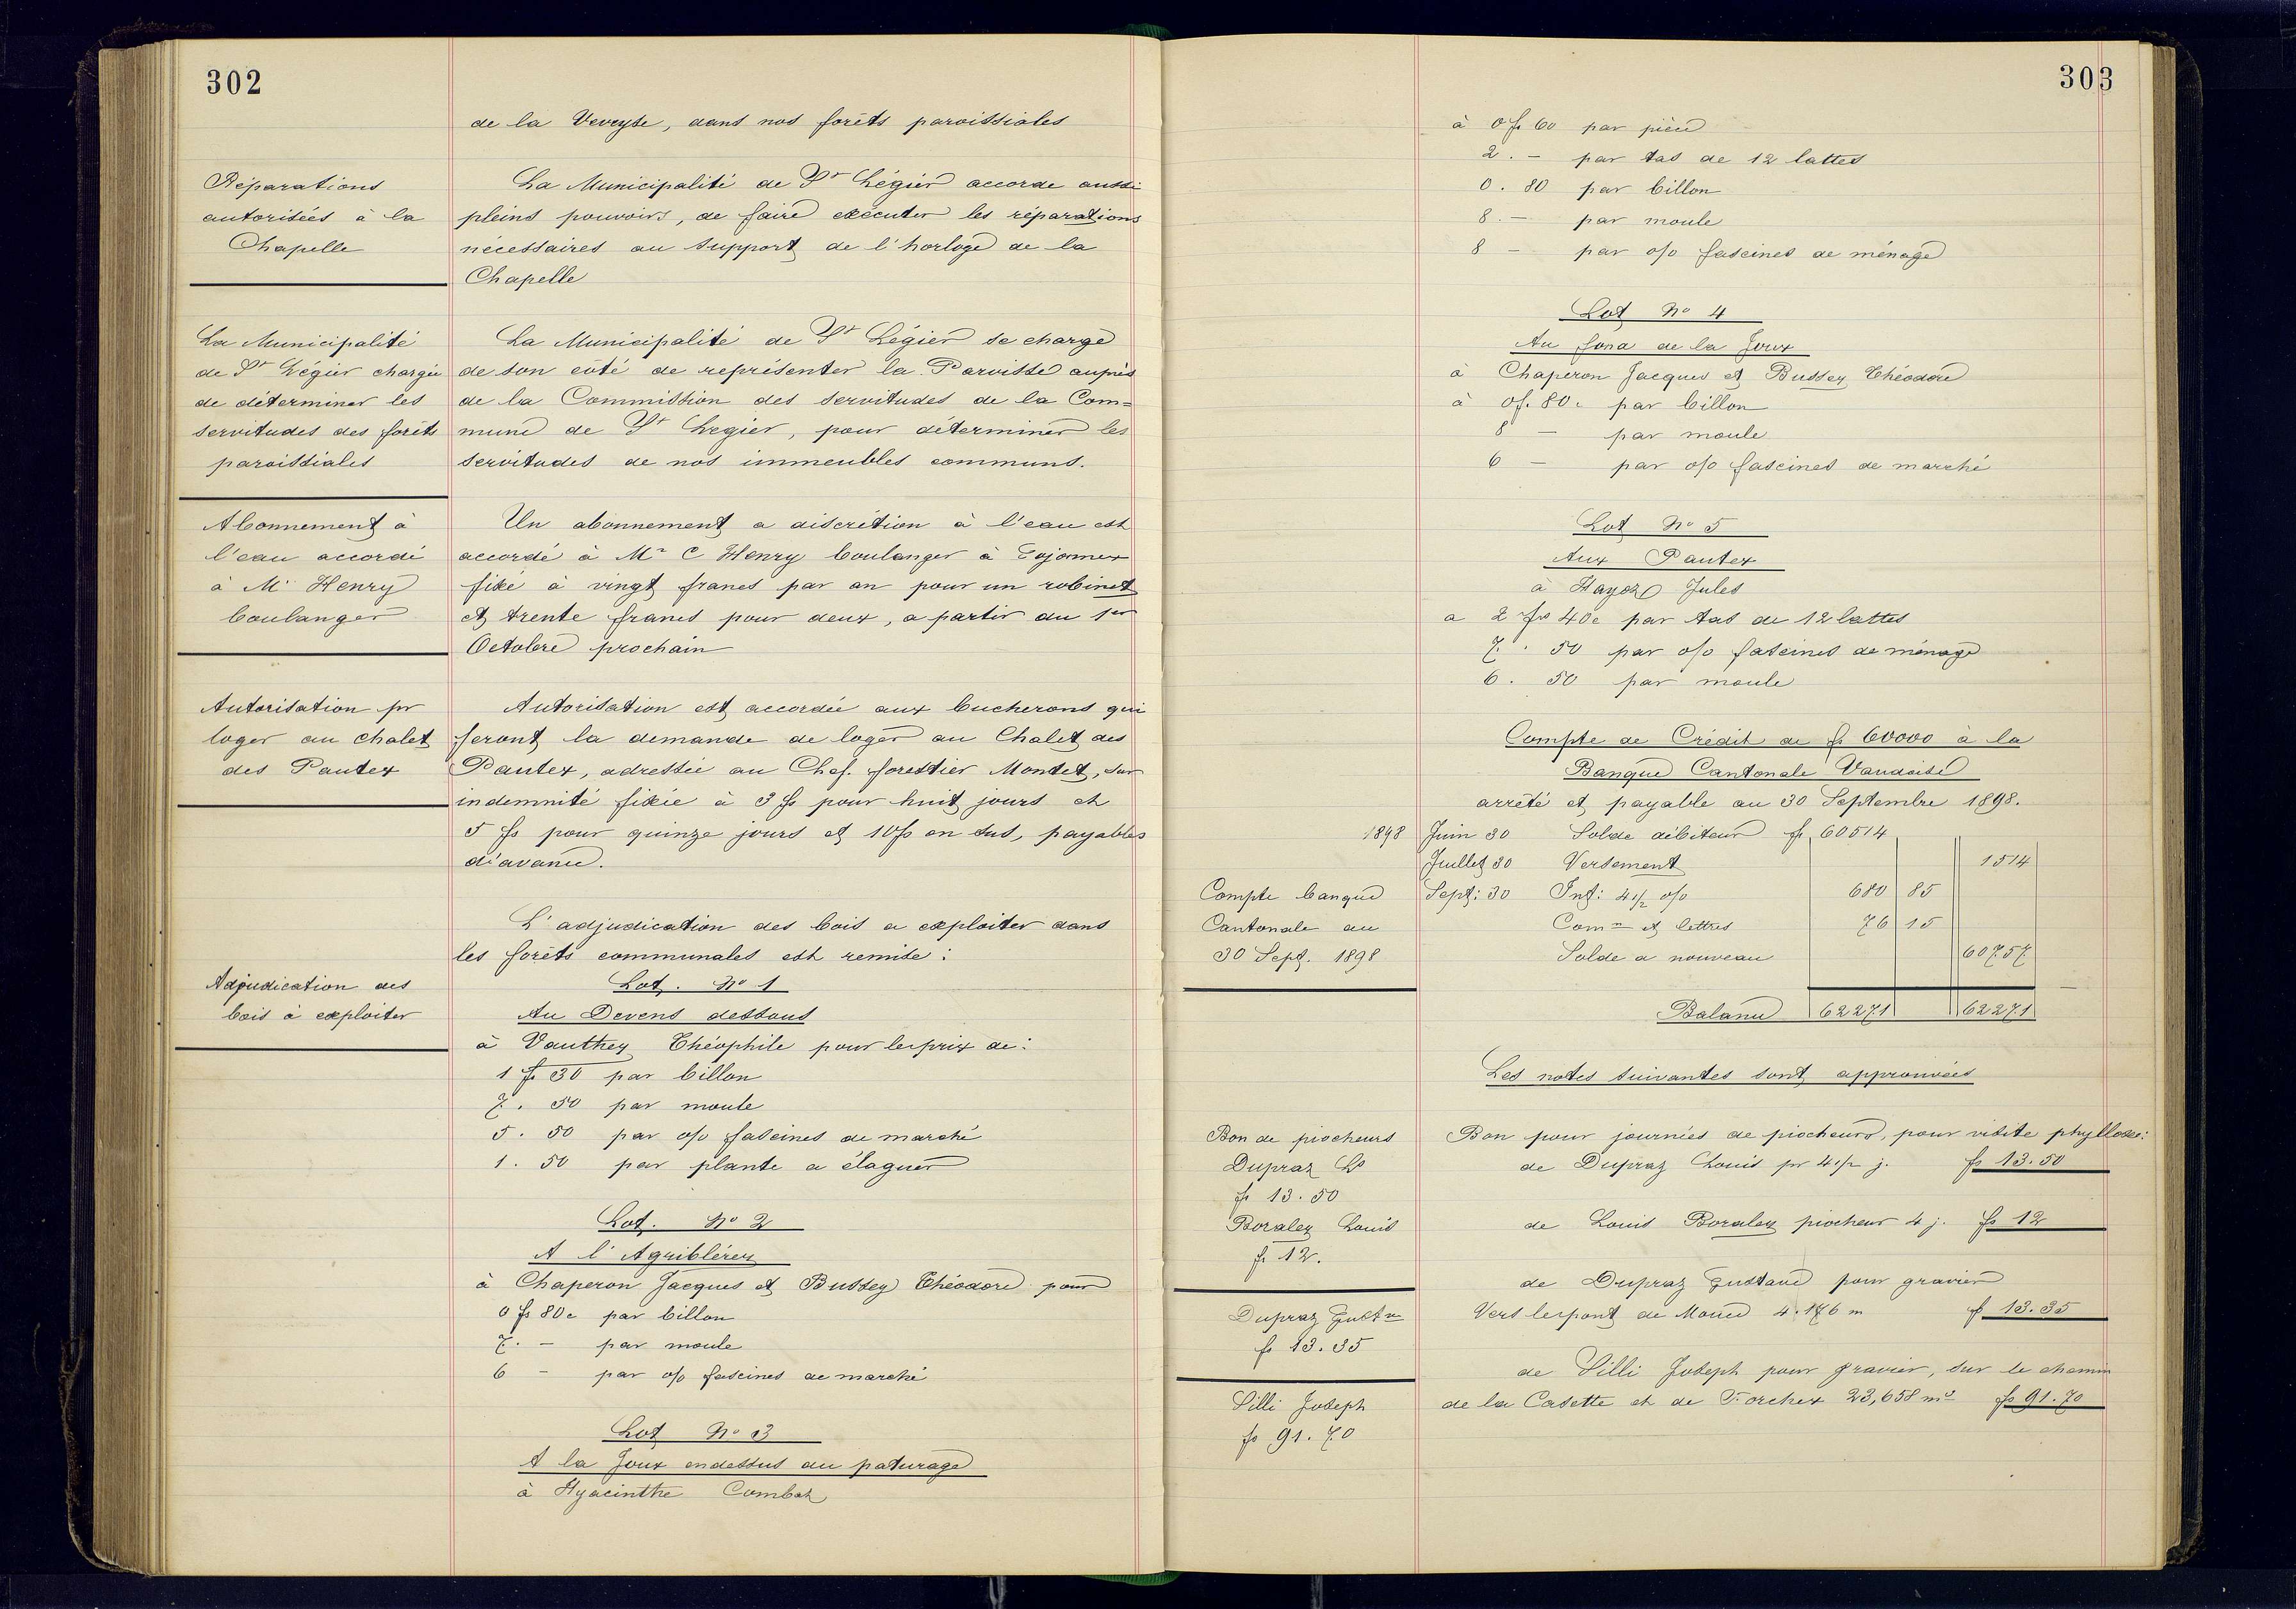 302
de la Veveyse, dans nos forêts paroissiales
Réparations
autorisées à la
Chapelle
La Municipalité de St Légier accorde aussi
pleins pouvoirs, de faire exécuter les réparations
nécessaires au support de l'horloge de la
Chapelle
La Municipalité
de St Légier chargée
de déterminer les
servitudes des forêts
paroissiales
La Municipalité de St Légier se charge
de son côté de représenter la Paroisse auprès
de la Commission des servitudes de la Com=
mune de St Legier, pour déterminer les
servitudes de nos immeubles communs.
Abonnement à
l'eau accordé
à Mr Henry
boulanger
Un abonnement a discrétion à l'eau est
accordé à Mr C Henry boulanger à Gojonnex
fixé à vingt francs par an pour un robinet
et trente francs pour deux, a partir du 1er
Octobre prochain
Autorisation pr
loger au chalet
des Pautex
Autorisation est accordée aux bucherons qui
feront la demande de loger au Chalet des
Pautex, adressée au Chef. forestier Montet, sur
indemnité fixée à 3 fs pour huit jours et
5 fs pour quinze jours et 10 fs en sus, payables
d'avance.
Adjudication des
bois à exploiter
L'adjudication des bois a exploiter dans
les forêts communales est remise :
Lot. No 1
Au Devens dessous
à Vauthey Théophile pour le prix de :
1 fr 30 par billon
7. 50 par moule
5. 50 par o/o fascines de marché
1. 50 par plante a élaguer
Lot. No 2
A l'Agriblérey
à Chaperon Jacques et Bussey Théodore pour
0 fs 80c par billon
7. - par moule
6 - par o/o fascines de marché
Lot No 3
A la Joux endessus du paturage
à Hyacinthe Combat
303
à 0 fr 60 par pièce
2. - par tas de 12 lattes
0. 80 par billon
8. - par moule
8 - par o/o fascines de ménage
Lot No 4
Au fond de la Joux
à Chaperon Jacques et Bussey Théodore
à 0 f. 80c par billon
8 - par moule
6 - par o/o fascines de marché
Lot No 5
Aux Pautex
à Hayoz Jules
a 2 frs 40c par tas de 12 lattes
7. 50 par o/o fascines de ménage
6. 50 par moule
Compte de Crédit de fr 60000 à la
Banque Cantonale Vaudoise
arrêté et payable au 30 Septembre 1898.
1898 Juin 30 Solde débiteur fr 60514
Juillet 30 Versement 1514
Compte banque
Cantonale au
30 Sept. 1898
Sept: 30 Int: 4 1/2 o/o 680 85
Comon et lettres 76 15
Solde a nouveau 60757
Balance 62271 62271
Les notes suivantes sont approuvées
Bon de piocheurs
Dupraz Ls
fr 13.50
Boraley Louis
fr 12.
Bon pour journées de piocheurs, pour visite phylloxe:
de Dupraz Louis pr 4 1/2 j. fr 13.50
de Louis Boraley piocheur 4 j. fs 12
Dupraz Gustve
fr 13.35
de Dupraz Gustave pour gravier
Vers le pont de 4.176 m fr 13.35
Silli Joseph
fr 91.70
de Silli Joseph pour gravier, sur le chemin
de la Casette et de Porchex 23,658 m3 fs 91.70